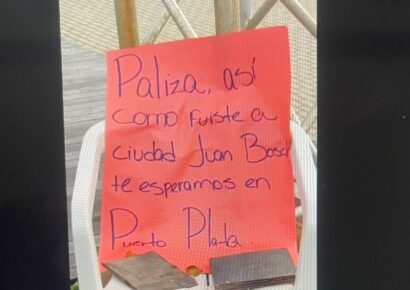 Paliza, así
como fuiste a
ciudad Juan Bosch
te esperamos en
Puerto Plata.